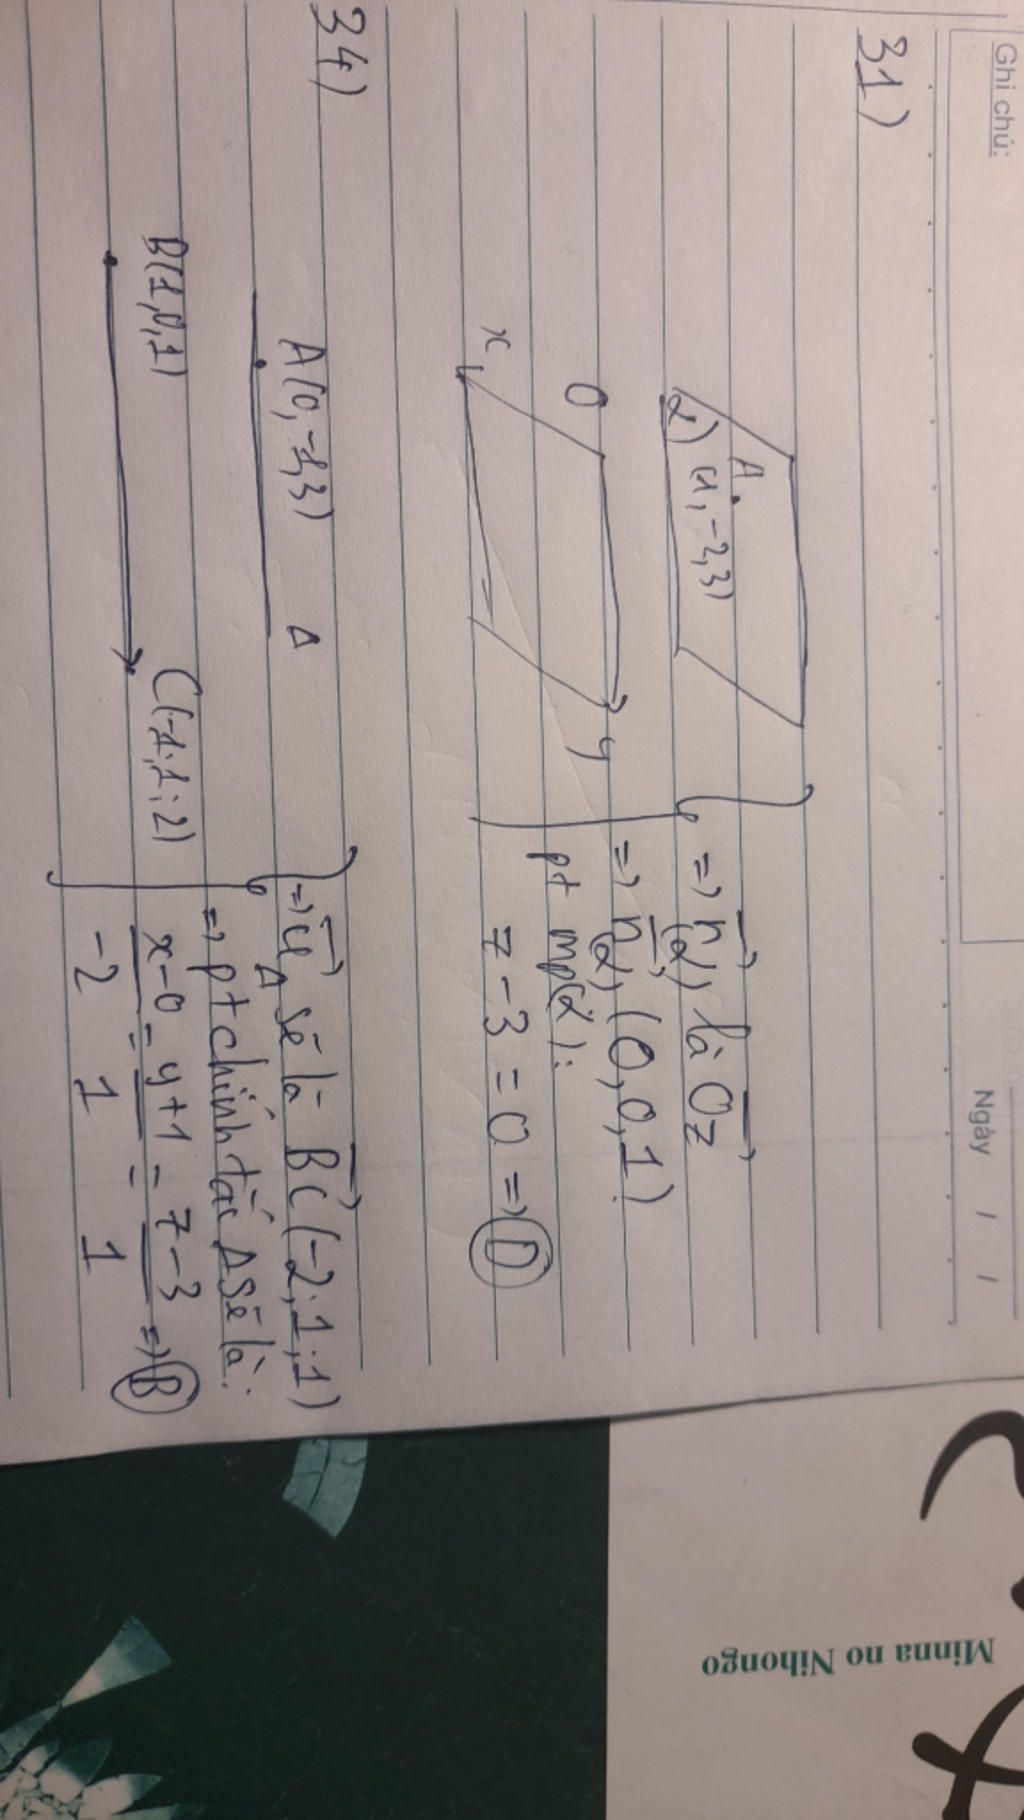 Ghi chú:
Ngày / /
31)
A
α) (1,-2,3)
O
x
y
=> n(α) là Oz
=> n(α) (0,0,1)
pt mp(α):
z-3=0 => D
34)
A(0,-1,3)
Δ
B(1,0,1)
C(-1;1;2)
=> uΔ sẽ là BC(-2;1;1)
=> pt chính tắc Δ sẽ là:
x-0 = y+1 = z-3 => B
-2 1 1
Minna no Nihongo